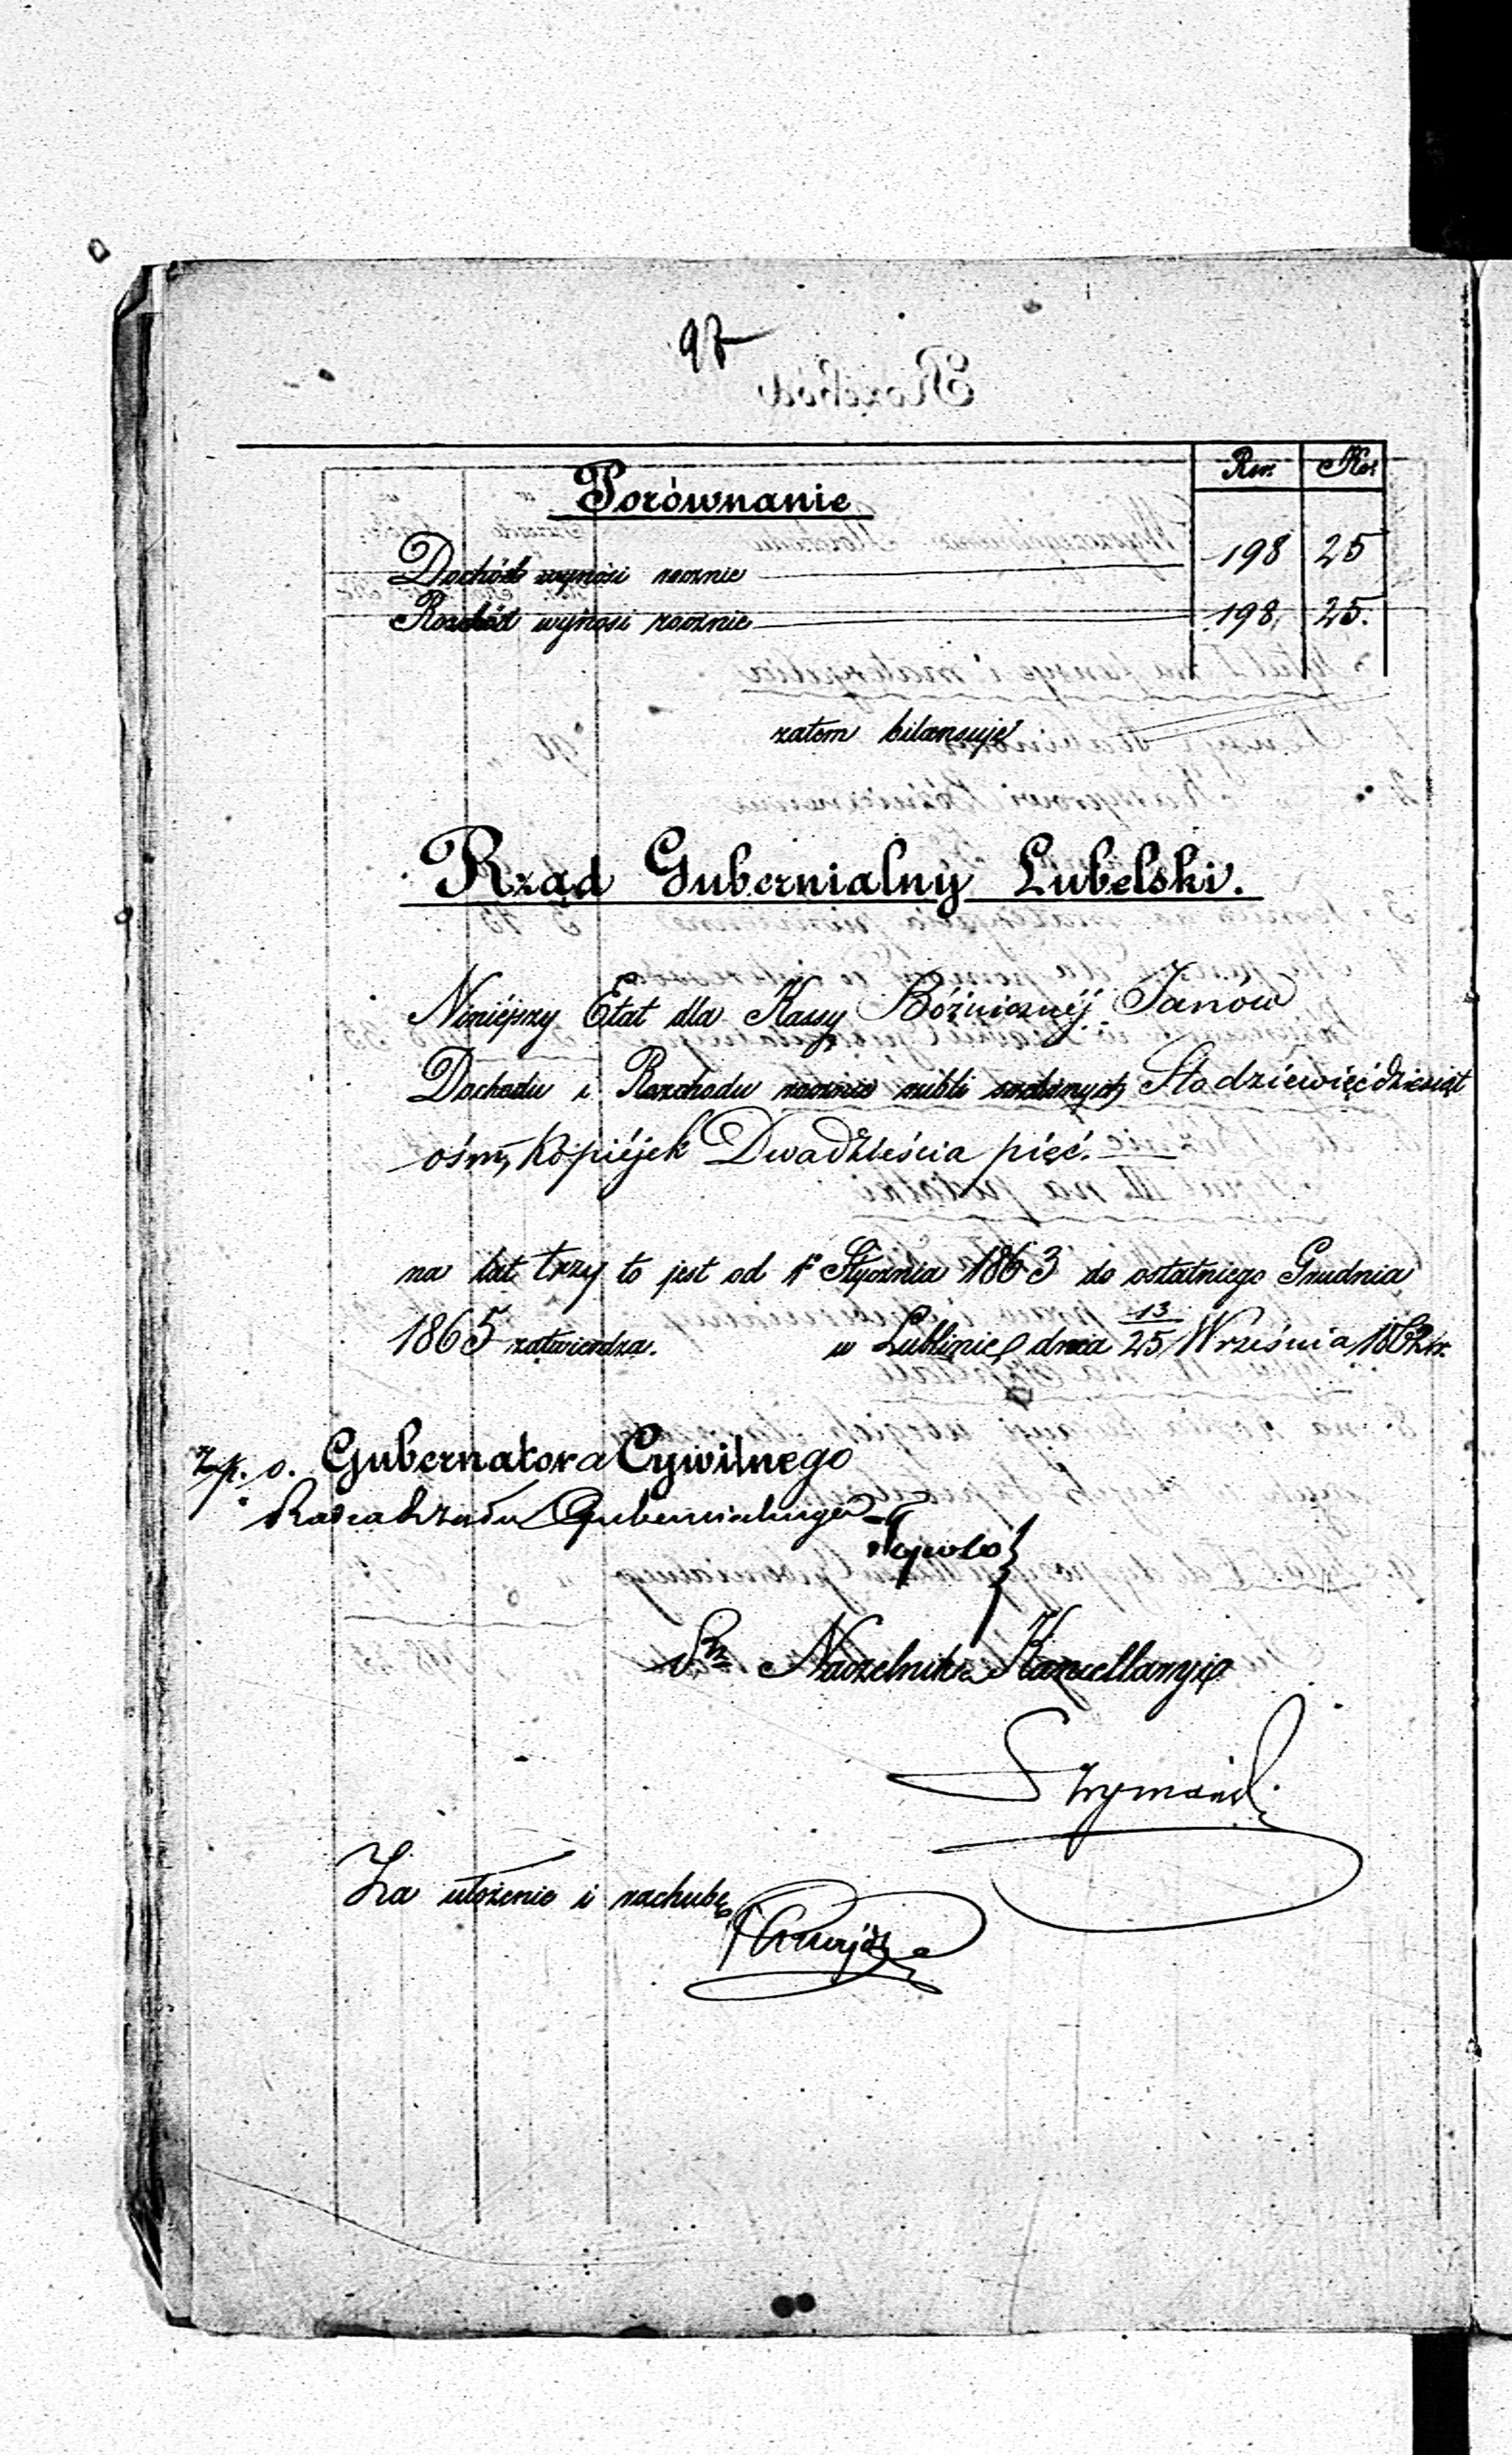 97
Rsr. Kop.
Porównanie
Dochód wynosi rocznie 198 25
Rozchód wynosi rocznie 198. 25.
zatem bilansuje
Rząd Gubernialny Lubelski.
Niniéjszy Etat dla Kassy Bóźnicznéj Janów
Dochodu i Rozchodu rocznie rubli srebrnych Stodziewięćdziesiąt
ośm, kopiéjek Dwadzieścia pięć.
na lat trzy to jest od 1º Stycznia 1863 do ostatniego Grudnia
1865 zatwierdza. w Lublinie dnia 13/25 Września 1862 r.
Z. p. o. Gubernatora Cywilnego
Radca Rządu Gubernialnego
Naczelnika Kancellaryi
Za ułożenie i rachubę